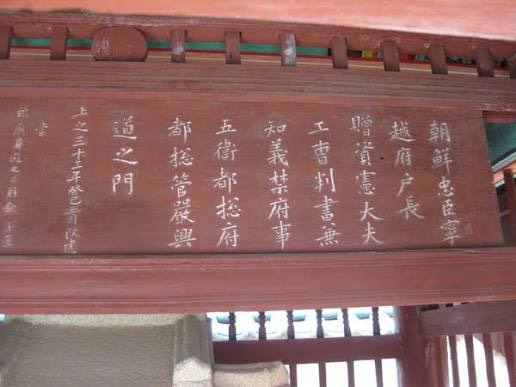 朝鮮忠臣寧
越府戶長
贈資憲大夫
工曹判書兼
知義禁府事
五衛都総府
都総管嚴興
道之門
上之三十三年癸巳改建